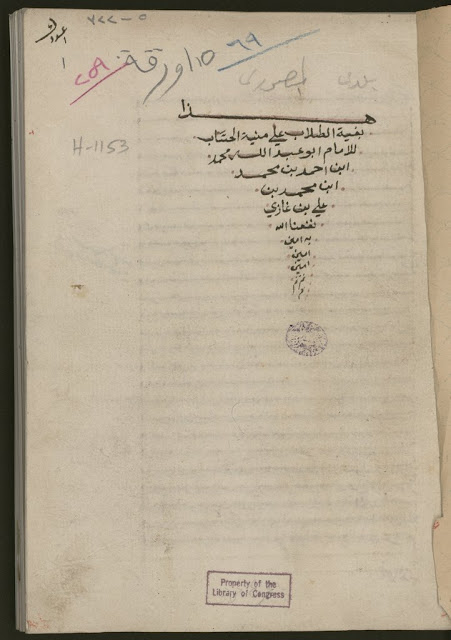 ٧٢٢-٥
١
٦٩
١٥١ ورقة
٢٥٩
H-1153
هذا
بغية الطلاب علي منية الحساب
للامام ابو عبد الله محمد
ابن احمد بن محمد
ابن محمد بن
علي بن غازي
نفعنا الله
به امين
امين
امين
Property of the
Library of Congress